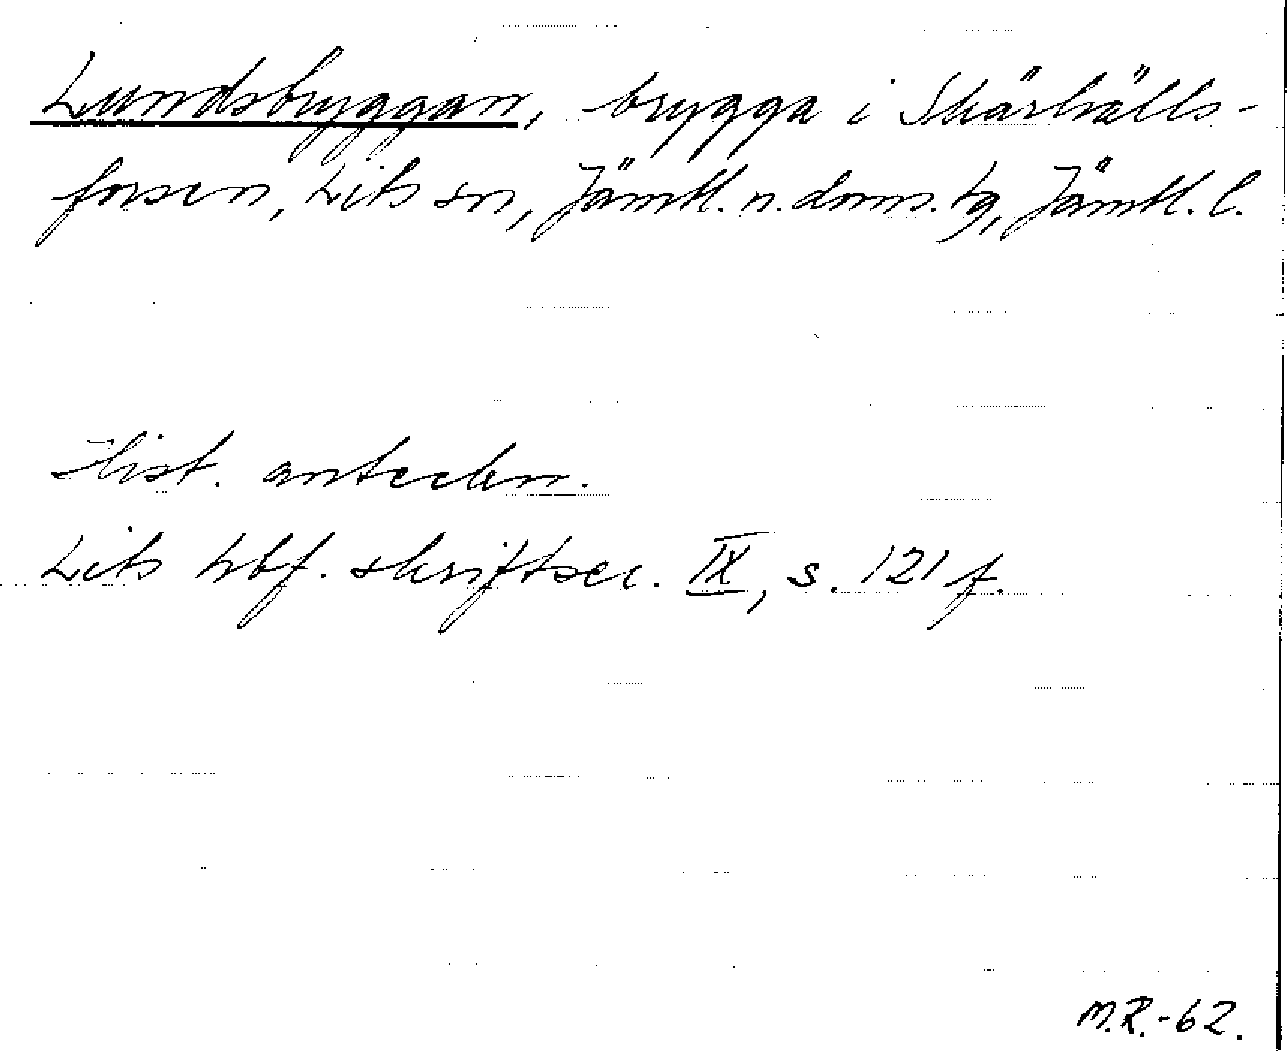 Lundsbryggan, brygga i Skärhälls-
forsen, Lits sn, Jämtl. n. doms. tg, Jämtl. l.
Hist. anteckn.
Lits hbf. skriftser. IX, s. 121 f.
M.R.-62.